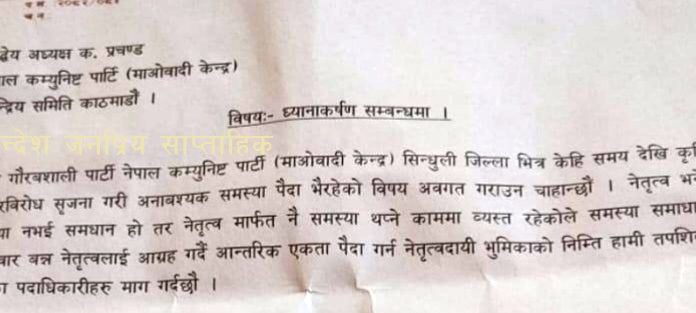 २०८२/०८/
द्धेय अध्यक्ष क. प्रचण्ड
ाल कम्युनिष्ट पार्टि (माओवादी केन्द्र)
न्द्रिय समिति काठमाडौ ।
विषयः- ध्यानाकर्षण सम्बन्धमा ।
न्देश जनप्रिय साप्ताहिक
गौरबशाली पार्टी नेपाल कम्युनिष्ट पार्टी (माओवादी केन्द्र) सिन्धुली जिल्ला भित्र केहि समय देखि कृ
रविरोध सृजना गरी अनाबश्यक समस्या पैदा भैरहेको विषय अवगत गराउन चाहान्छौं । नेतृत्व भ
या नभई समधान हो तर नेतृत्व मार्फत नै समस्या थप्ने काममा व्यस्त रहेकोले समस्या समाधा
बार बन्न नेतृत्वलाई आग्रह गर्दै आन्तरिक एकता पैदा गर्न नेतृत्वदायी भुमिकाको निम्ति हामी तपशि
ा पदाधिकारीहरु माग गर्दछौ ।